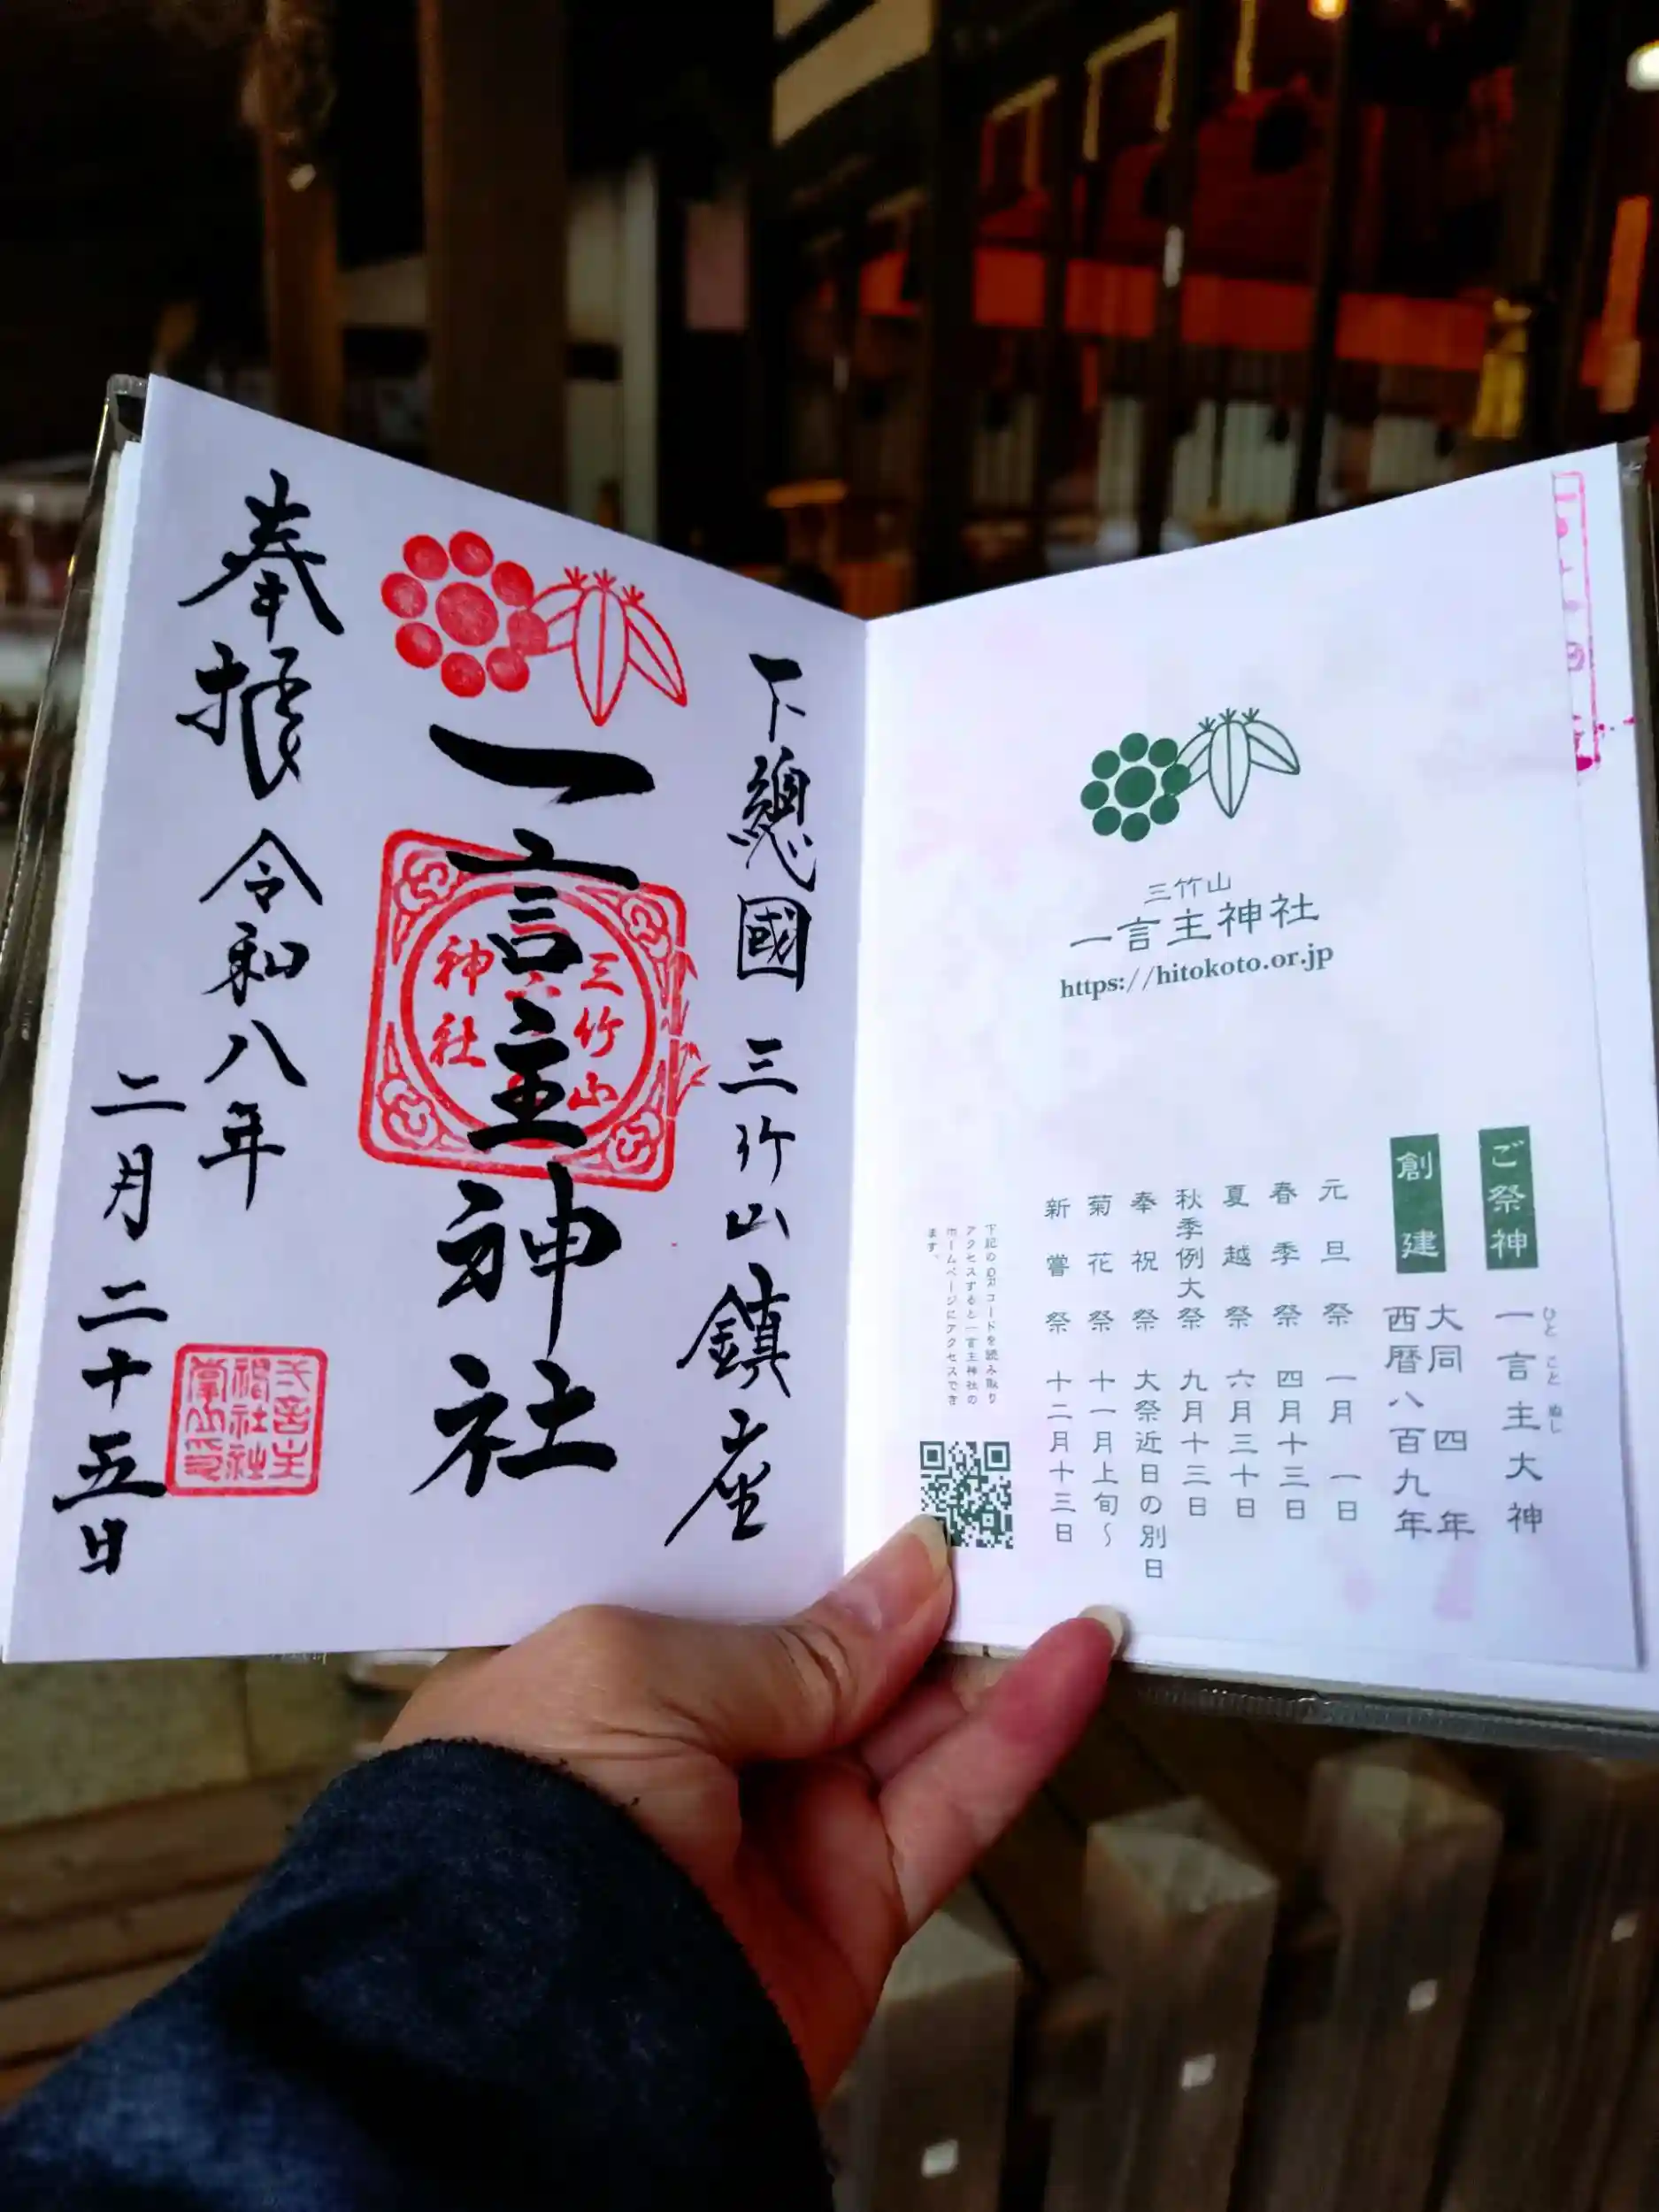 三竹山
一言主神社
https://hitokoto.or.jp
ご祭神
一言主大神
ひとことぬし
創建
大同四年
西暦八百九年
元旦祭 一月一日
春季祭 四月十三日
夏越祭 六月三十日
秋季例大祭 九月十三日
奉祝祭 大祭近日の別日
菊花祭 十一月上旬～
新嘗祭 十二月十三日
下記のQRコードを読み取り
アクセスすると一言主神社の
ホームページにアクセスでき
ます。
下總國 三竹山鎮座
一言主神社
三竹山
神社
奉拝 令和八年
二月二十五日